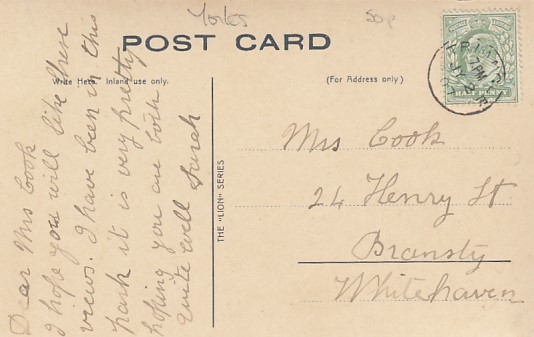 Yorks
50p
POST CARD
Write Here. Inland use only.
(For Address only)
Dear Mrs Cook
I hope you will like these
views. I have been in this
park it is very pretty
hoping you are both
quite well Sarah
THE "LION" SERIES
Mrs Cook
24 Henry St
Bransty
Whitehaven
HALF PENNY